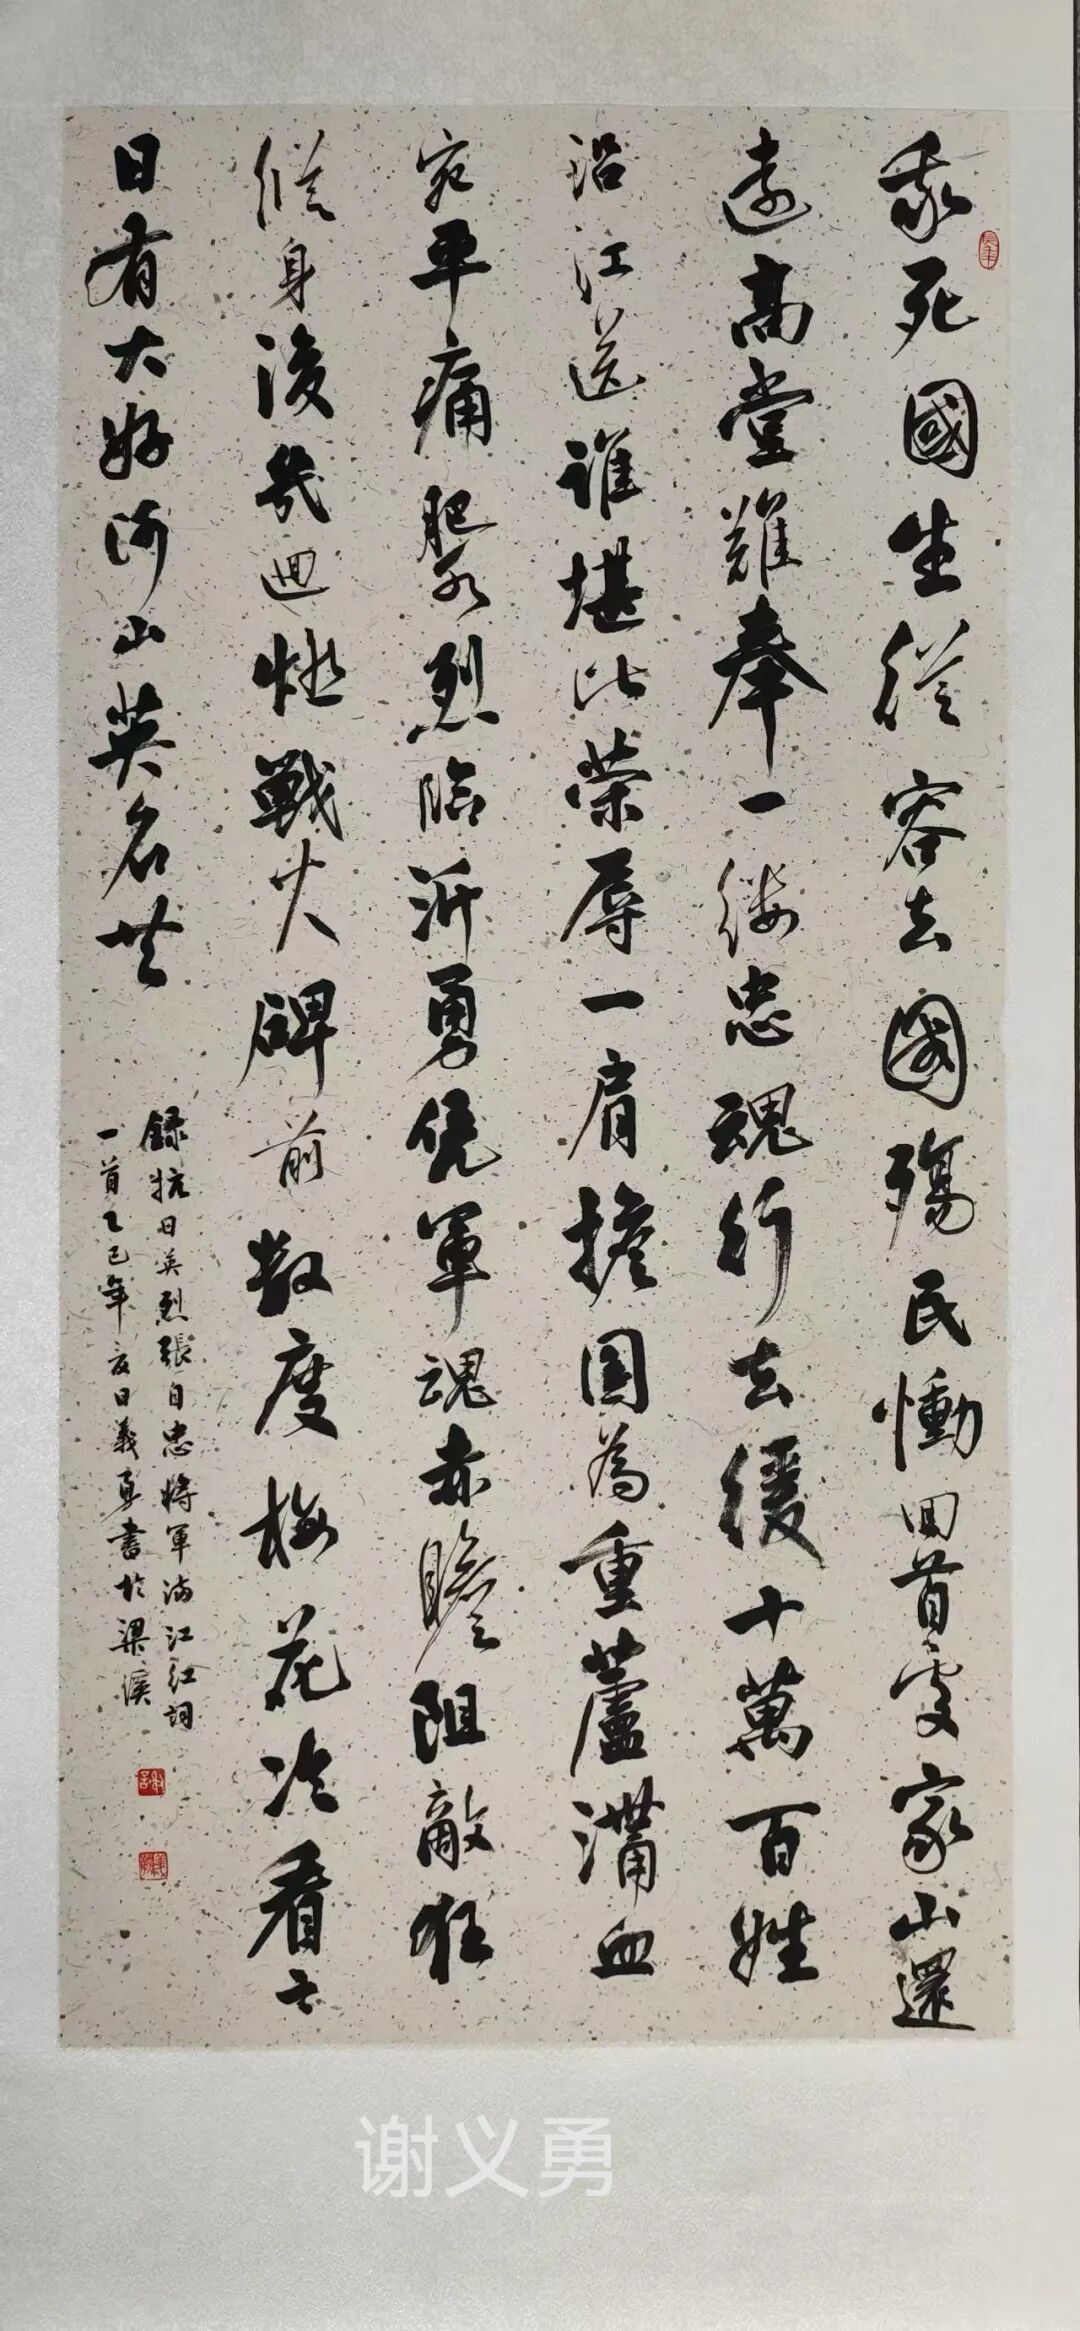 我死國生從容去國殤民慟回首處家山還
遠高堂難奉一縷忠魂行去緩十萬百姓
沿江送誰堪比榮辱一肩擔国為重蘆溝血
宛平痛肥水烈臨沂勇凭軍魂赤膽阻敵狂
縱身後幾迴燃戰火碑前數度梅花冷看今
日有大好河山英名共
錄抗日英烈張自忠將軍滿江紅詞
一首乙巳年夏日義勇書於梁溪
谢义勇